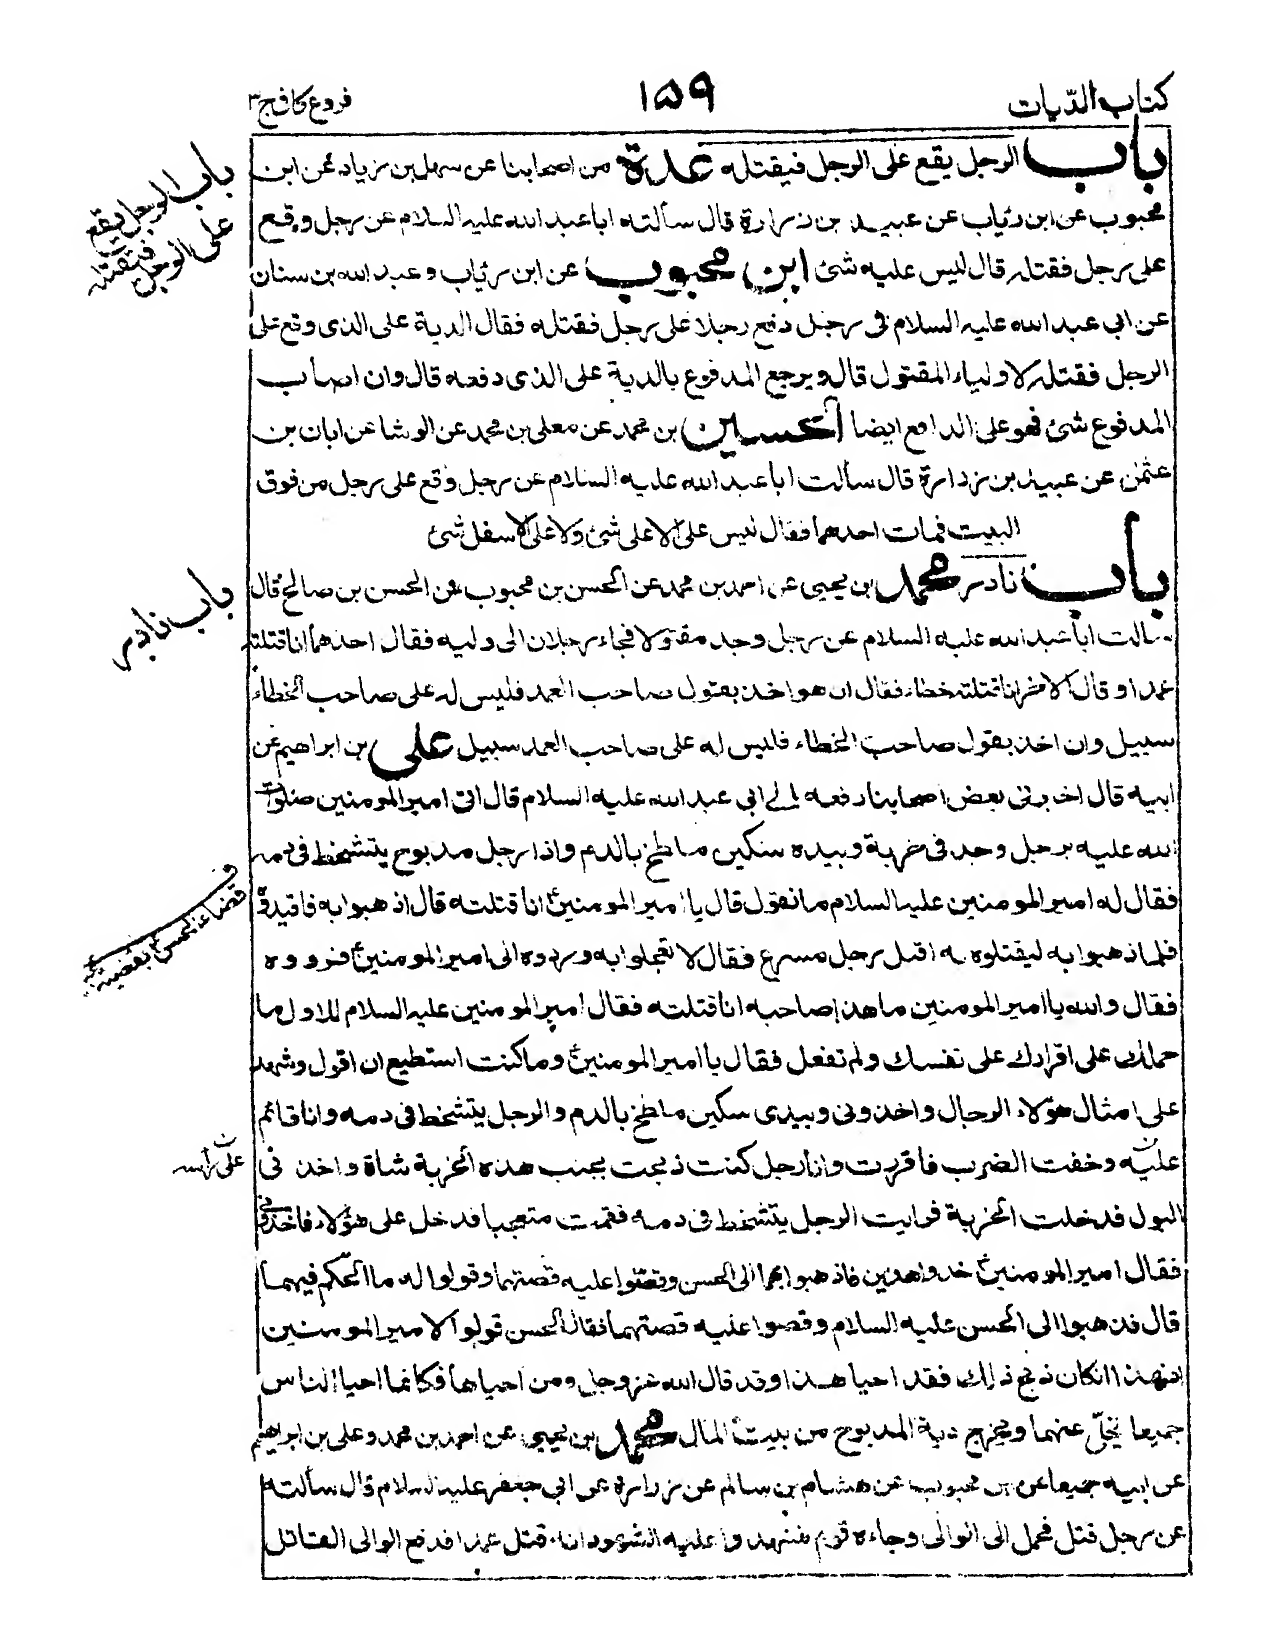 كتاب الديات
١٥٩
فروع كافي ج٣
باب الرجل يقع على الرجل فيقتله عدة من اصحابنا عن سهل بن زياد عن ابن
محبوب عن ابن رئاب عن عبيد بن زرارة قال سألته اباعبد الله عليه السلام عن رجل وقع
على رجل فقتله قال ليس عليه شئ ابن محبوب عن ابن رئاب وعبد الله بن سنان
عن ابي عبد الله عليه السلام في رجل دفع رجلا على رجل فقتله فقال الدية على الذى وقع على
الرجل فقتله لاولياء المقتول قال ويرجع المدفوع بالدية على الذى دفعه قال وان اصاب
المدفوع شئ فهو على الدافع ايضا الحسين بن محمد عن معلى بن محمد عن الوشا عن ابان بن
عثمن عن عبيد بن زرارة قال سألت اباعبد الله عليه السلام عن رجل وقع على رجل من فوق
البيت فمات احدهما فقال ليس على الاعلى شئ ولا على الاسفل شئ
باب نادر محمد بن يحيى عن احمد بن محمد عن الحسن بن محبوب عن الحسن بن صالح قال
سالت اباعبد الله عليه السلام عن رجل وجد مقتولا فجاء رجلان الى وليه فقال احدهما انا قتلته
عمدا وقال الاخر انا قتلته خطاء فقال ان هو اخذ بقول صاحب العمد فليس له على صاحب الخطاء
سبيل وان اخذ بقول صاحب الخطاء فليس له على صاحب العمد سبيل على بن ابراهيم عن
ابيه قال اخبرنى بعض اصحابنا رفعه الى ابي عبد الله عليه السلام قال اتى امير المومنين صلوات
الله عليه برجل وجد فى خربة وبيده سكين ملطخ بالدم واذا رجل مذبوح يتشحط فى دمه
فقال له امير المومنين عليه السلام ما تقول قال يا امير المومنين انا قتلته قال اذهبوا به فاقيدوه
فلما ذهبوا به ليقتلوه به اقبل رجل مسرع فقال لا تعجلوا به وردوه الى امير المومنين فردوه
فقال والله يا امير المومنين ما هذا صاحبه انا قتلته فقال امير المومنين عليه السلام للاول ما
حملك على اقرارك على نفسك ولم تفعل فقال يا امير المومنين وما كنت استطيع ان اقول وشهد
على امثال هؤلاء الرجال واخذونى وبيدى سكين ملطخ بالدم والرجل يتشحط فى دمه وانا قائم
عليه وخفت الضرب فاقررت وانا رجل كنت ذبحت بجنب هذه الخربة شاة واخذنى
البول فدخلت الخربة فرايت الرجل يتشحط فى دمه فقمت متعجبا فدخل على هؤلاء فاخذونى
فقال امير المومنين خذوا هذين فاذهبوا بهما الى الحسن وقصوا عليه قصتهما وقولوا له ما الحكم فيهما
قال فذهبوا الى الحسن عليه السلام وقصوا عليه قصتهما فقال الحسن قولوا لامير المومنين
ان هذا ان كان ذبح ذلك فقد احيا هذا وقد قال الله عز وجل ومن احياها فكانما احيا الناس
جميعا يخلّ عنهما ويخرج دية المذبوح من بيت المال محمد بن يحيى عن احمد بن محمد وعلى بن ابراهيم
عن ابيه جميعا عن بن محبوب عن هشام بن سالم عن زرارة عن ابي جعفر عليه السلام قال سألته
عن رجل قتل فحمل الى الوالى وجاءه قوم فشهدوا عليه الشهود انه قتل عمدا فدفع الوالى القاتل
باب الرجل يقع
على الرجل
فيقتله
باب نادر
على راسه